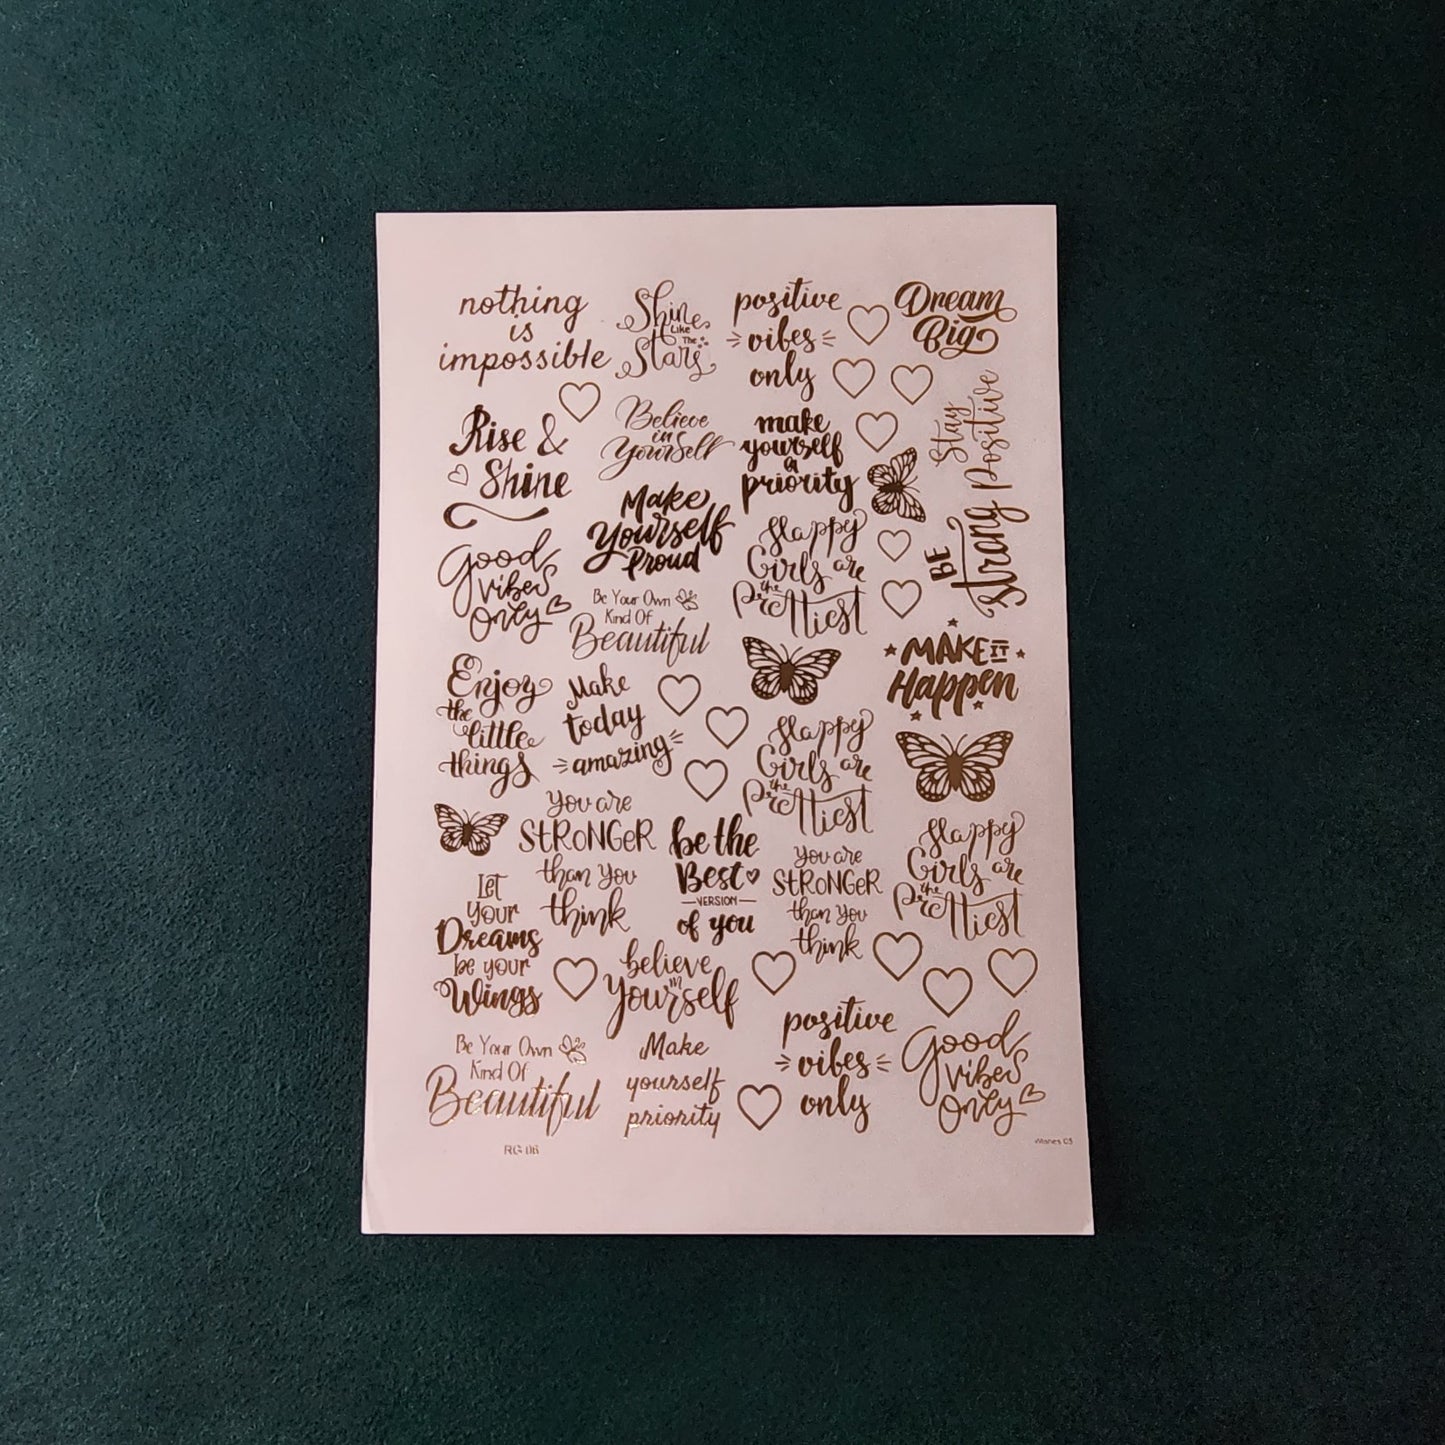 nothing
is
impossible
Shine
Like
The
Stars
positive
vibes
only
Dream
Big
Rise &
Shine
Believe
in
Yourself
make
yourself
a
priority
Stay
Positive
BE
strong
Make
Yourself
Proud
Good
vibes
Only
Happy
Girls are
the
Prettiest
Be Your Own
Kind Of
Beautiful
MAKE IT
Happen
Enjoy
the
little
things
Make
today
amazing
Happy
Girls are
the
Prettiest
You are
STRONGER
than You
think
be the
Best
VERSION
of you
You are
STRONGER
than You
think
Happy
Girls are
the
Prettiest
Let
your
Dreams
be your
Wings
believe
in
yourself
Be Your Own
Kind Of
Beautiful
Make
yourself
priority
positive
vibes
only
Good
vibes
Only
RG 06